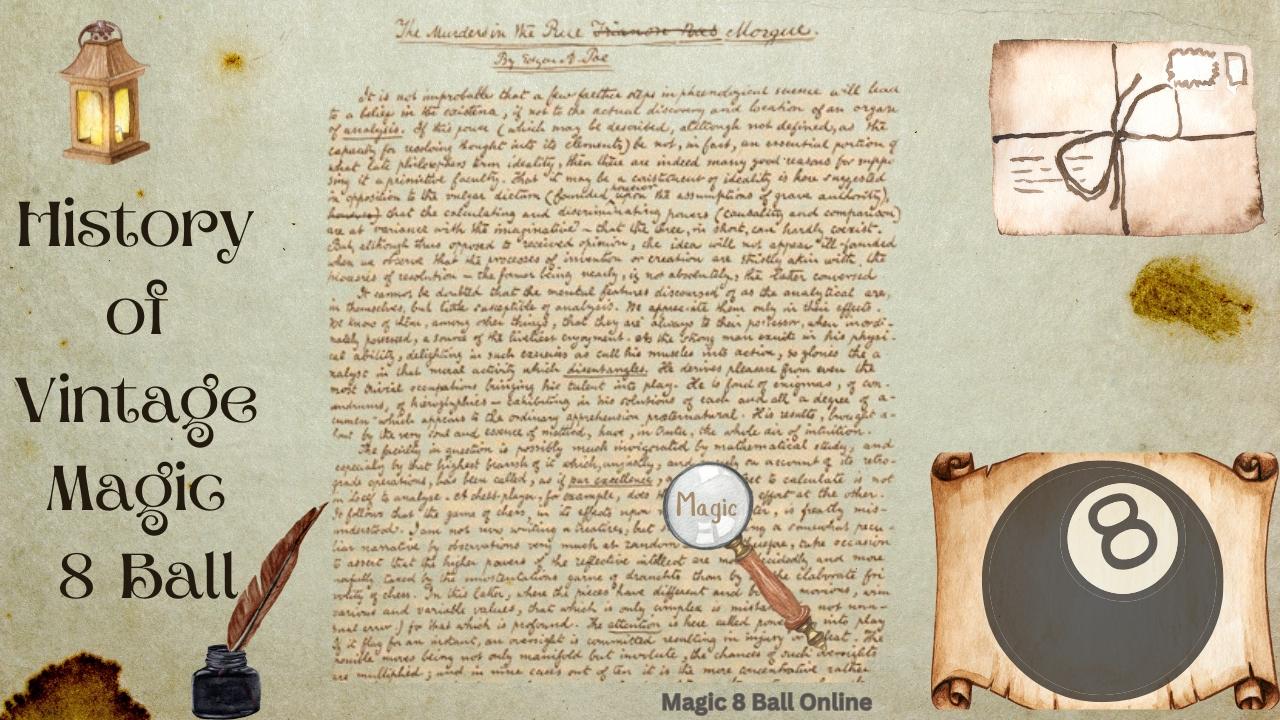 History
of
Vintage
Magic
8 Ball
The Murders in the Rue Trianon Bas Morgue.
By Edgar A Poe
It is not improbable that a few farther steps in phrenological science will lead
to a belief in the existence, if not to the actual discovery and location of an organ
of analysis. If this power (which may be described, although not defined, as the
capacity for resolving thought into its elements) be not, in fact, an essential portion of
what late philosophers term ideality, then there are indeed many good reasons for suppo-
sing it a primitive faculty. That it may be a constituent of ideality is here suggested
in opposition to the vulgar dictum (founded, however, upon the assumptions of grave authority),
that the calculating and discriminating powers (causality and comparison)
are at variance with the imaginative — that the three, in short, can hardly coexist.
But, although thus opposed to received opinion, the idea will not appear ill-founded
when we observe that the processes of invention or creation are strictly akin with the
processes of resolution — the former being nearly, if not absolutely, the latter conversed
It cannot be doubted that the mental features discoursed of as the analytical are,
in themselves, but little susceptible of analysis. We appreciate them only in their effects.
We know of them, among other things, that they are always to their possessor, when inordi-
nately possessed, a source of the liveliest enjoyment. As the strong man exults in his physi-
cal ability, delighting in such exercises as call his muscles into action, so glories the a-
nalyst in that moral activity which disentangles. He derives pleasure from even the
most trivial occupations bringing his talent into play. He is fond of enigmas, of con-
undrums, of hieroglyphics — exhibiting in his solutions of each and all a degree of a-
cumen which appears to the ordinary apprehension præternatural. His results, brought a-
bout by the very soul and essence of method, have, in truth, the whole air of intuition.
The faculty in question is possibly much invigorated by mathematical study, and
especially by that highest branch of it which, unjustly, and on account of its retro-
grade operations, has been called, as if par excellence, to calculate is not
in itself to analyse. A chess-player, for example, does effort at the other.
It follows that the game of chess, in its effects upon is greatly mis-
understood. I am not now writing a treatise, but a somewhat pecu-
liar narrative by observations very much at random take occasion
to assert that the higher powers of the reflective intellect are more decidedly and more
usefully tasked by the unostentatious game of draughts than by the elaborate fri-
volity of chess. In this latter, where the pieces have different and motions, with
various and variable values, that which is only complex is mistaken not unu-
sual error) for that which is profound. The attention is here called powerfully into play
If it flag for an instant, an oversight is committed resulting in injury or defeat. The
possible moves being not only manifold but involute, the chances of such oversights
are multiplied; and in nine cases out of ten it is the more concentrative rather
Magic
8
Magic 8 Ball Online